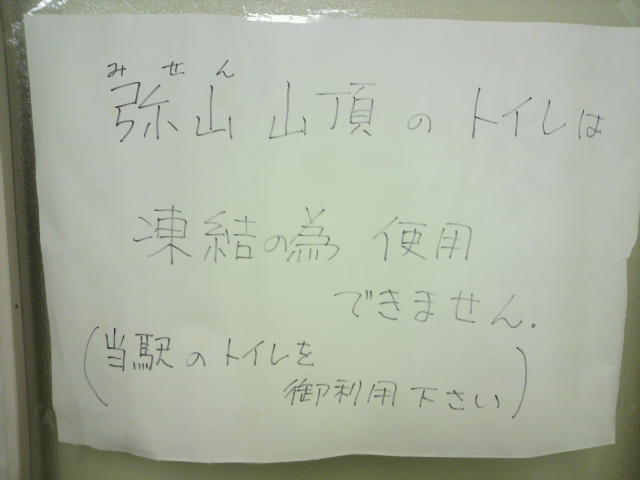 みせん
弥山 山頂 の トイレは
凍結の為 使用
できません.
(当駅のトイレを
御利用下さい)